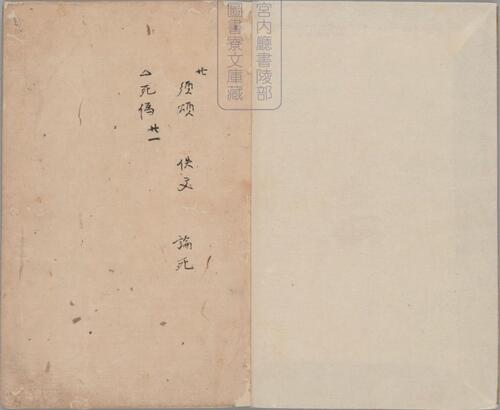 宮内廳書陵部
圖書寮文庫藏
廿 須頌 佚文 論死
△死偽 廿一